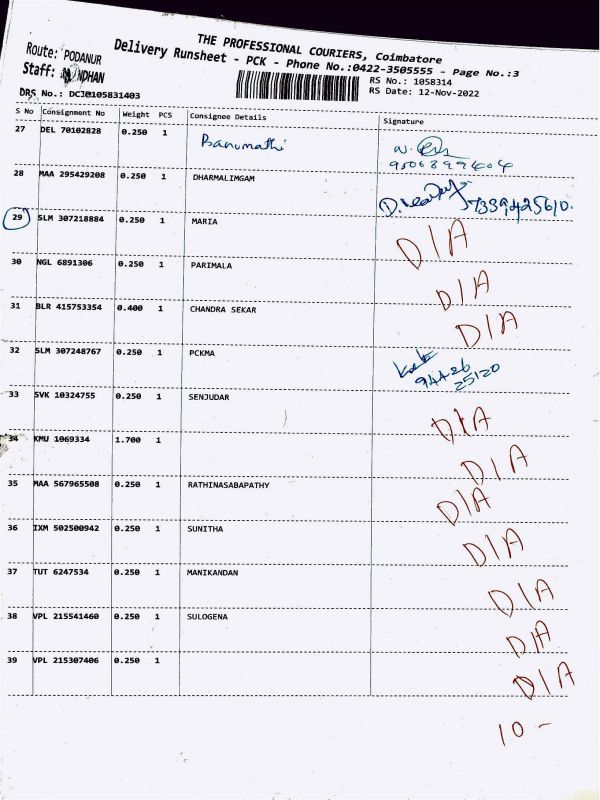 THE PROFESSIONAL COURIERS, Coimbatore
Route: PODANUR
Delivery Runsheet - PCK - Phone No.:0422-3505555 - Page No.:3
RS No.: 1058314
RS Date: 12-Nov-2022
DRS No.: DC30105831403
S No Consignment No Weight PCS Consignee Details Signature
27 DEL 70102828 0.250 1 Banumathi
28 MAA 295429208 0.250 1 DHARMALIMGAM
7339425610.
29 SLM 307218884 0.250 1 MARIA D/A
30 NGL 6891306 0.250 1 PARIMALA D/A
31 BLR 415753354 0.400 1 CHANDRA SEKAR D/A
32 SLM 307248767 0.250 1 PCKMA
94426
25120
33 SVK 10324755 0.250 1 SENJUDAR D/A
34 KMU 1069334 1.700 1 D/A
35 MAA 567965508 0.250 1 RATHINASABAPATHY D/A
36 IXM 502500942 0.250 1 SUNITHA D/A
37 TUT 6247534 0.250 1 MANIKANDAN D/A
38 VPL 215541460 0.250 1 SULOGENA D/A
39 VPL 215307406 0.250 1 D/A
10 -